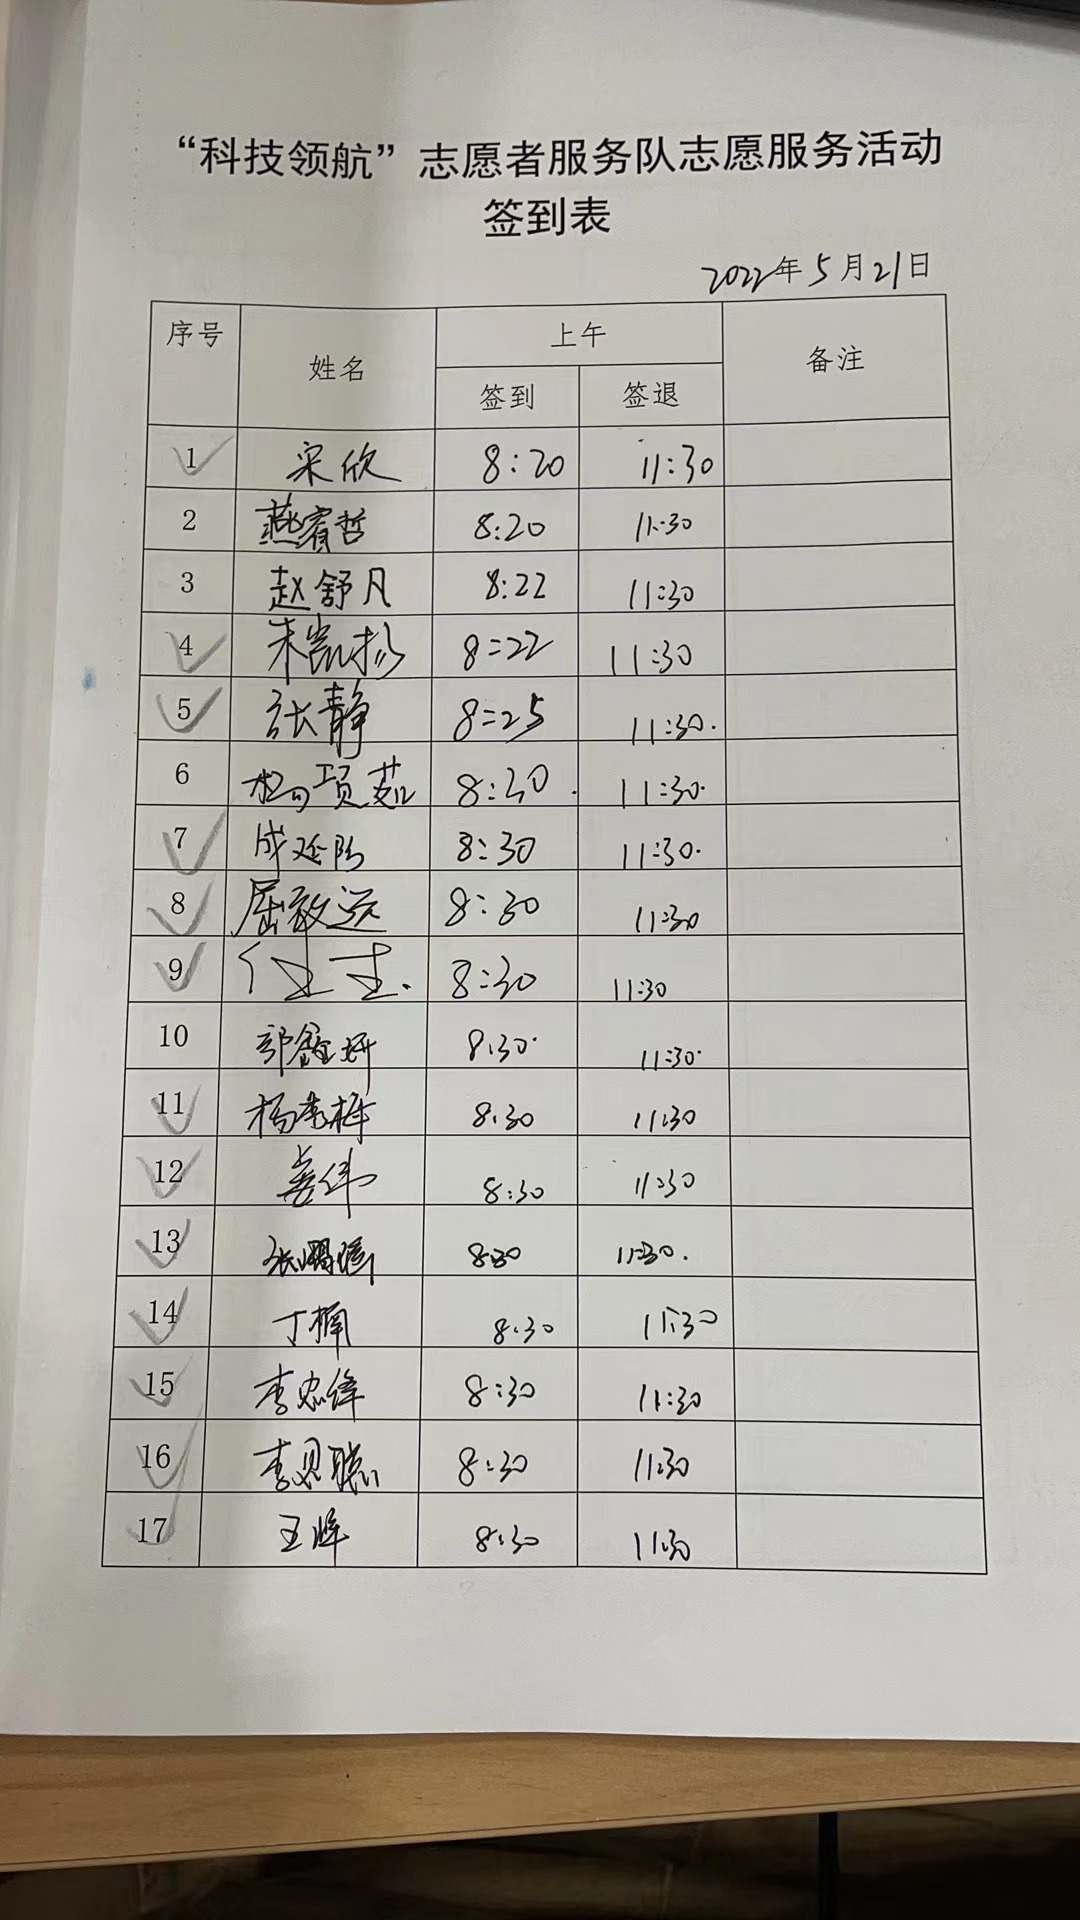 “科技领航”志愿者服务队志愿服务活动
签到表
2022年5月21日
序号 姓名 上午 备注
签到 签退
1 宋欣 8:20 11:30
2 燕睿哲 8:20 11:30
3 赵舒凡 8:22 11:30
4 朱凯扬 8:22 11:30
5 张静 8:25 11:30.
6 杨项茹 8:30. 11:30.
7 8:30 11:30.
8 屈敬远 8:30 11:30
9 8:30 11:30
10 郭鑫妍 8:30. 11:30.
11 杨秀梅 8:30 11:30
12 8:30 11:30
13 8:30 11:30.
14 丁楠 8:30 11:30
15 李忠锋 8:30 11:30
16 李思聪 8:30 11:30
17 8:30 11:30